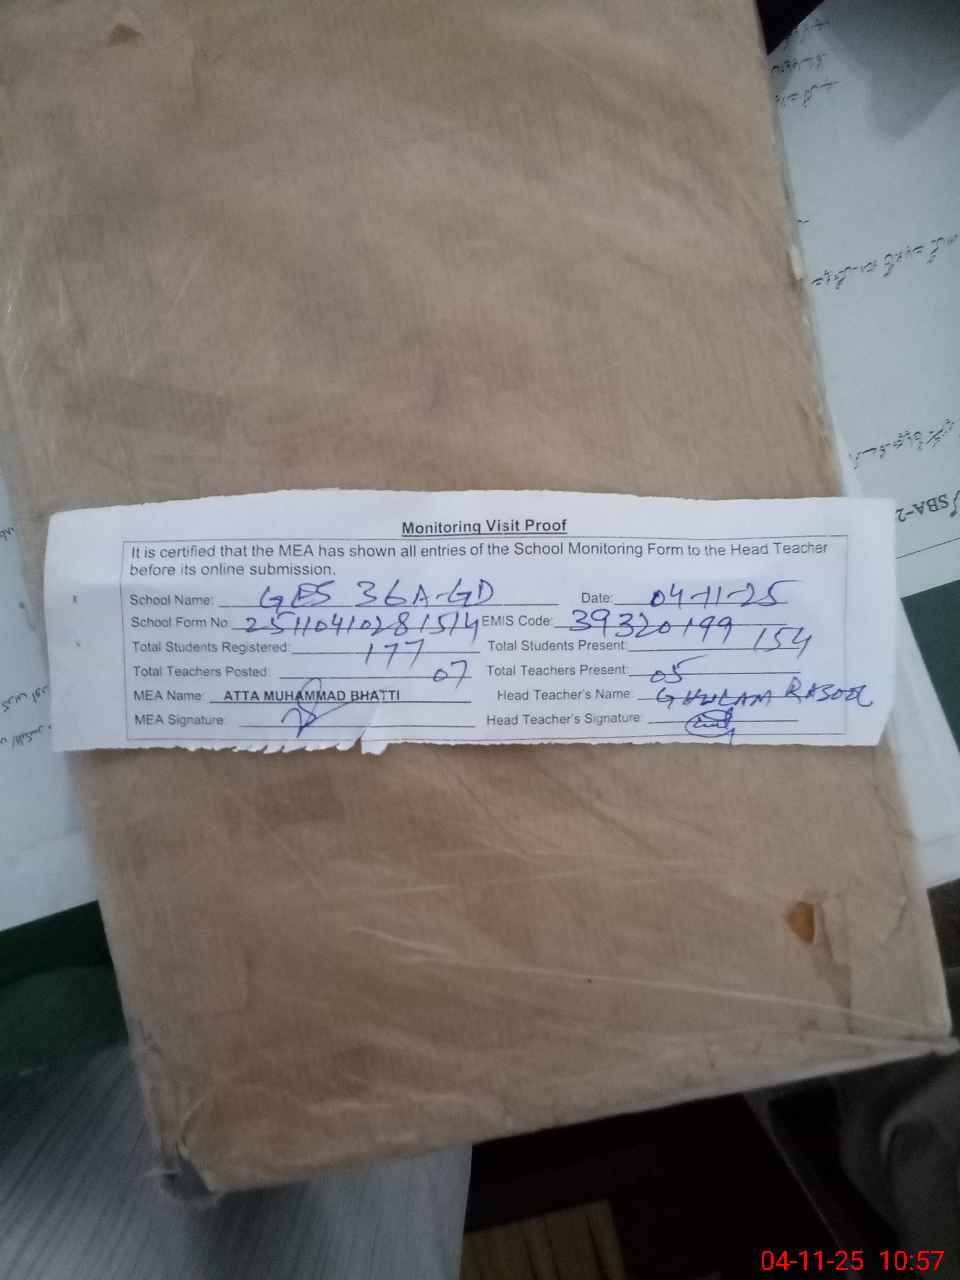 Monitoring Visit Proof
It is certified that the MEA has shown all entries of the School Monitoring Form to the Head Teacher
before its online submission.
School Name: GES 36A-GD Date: 04-11-25
School Form No. 25110410281514 EMIS Code: 39320199
Total Students Registered: 177 Total Students Present: 154
Total Teachers Posted: 07 Total Teachers Present: 05
MEA Name: ATTA MUHAMMAD BHATTI Head Teacher's Name: GHULAM RASOOL
MEA Signature: Head Teacher's Signature:
SBA-2
04-11-25 10:57